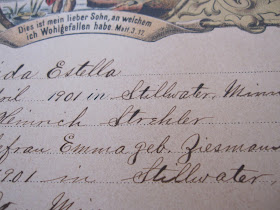 Dies ist mein lieber Sohn, an welchem
ich Wohlgefallen habe. Matt 3. 17.
da Estella
pril 1901 in Stillwater, Minn
Heinrich Strehler
frau Emma geb. Ziesman
1901 in Stillwater,